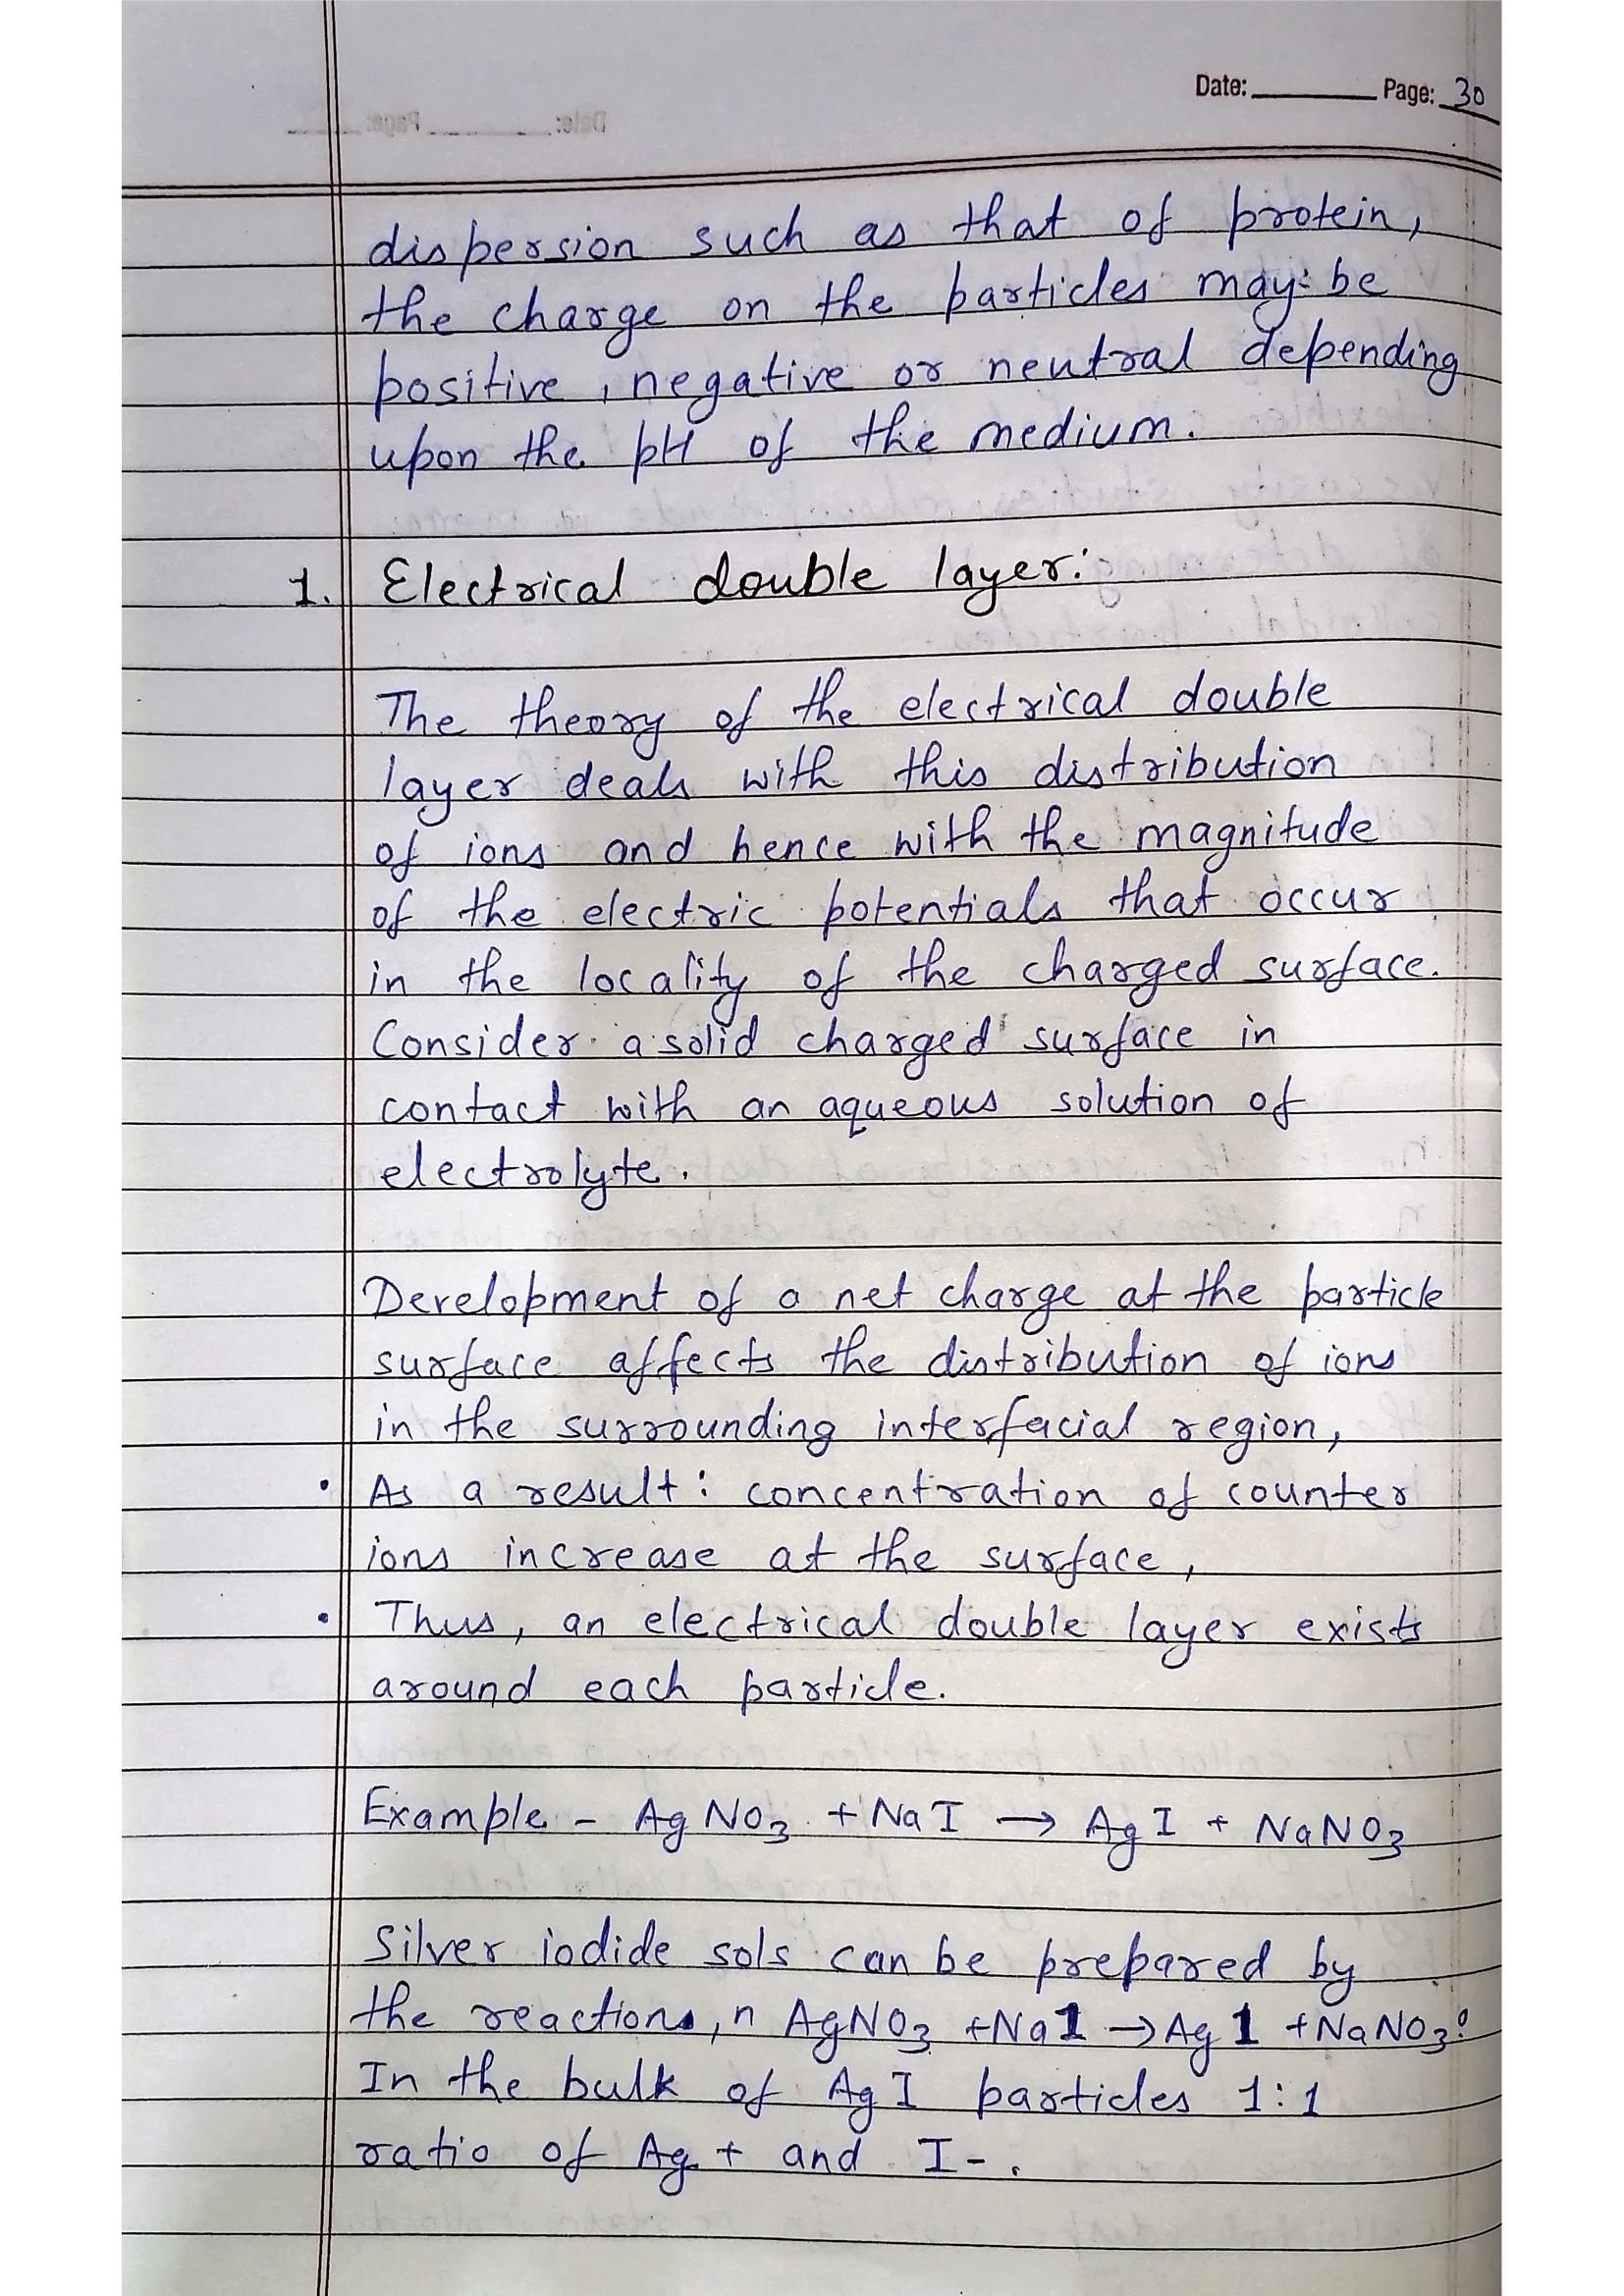 Date: Page: 30
dispersion such as that of protein,
the charge on the particles may be
positive, negative or neutral depending
upon the pH of the medium.
1. Electrical double layer:
The theory of the electrical double
layer deals with this distribution
of ions and hence with the magnitude
of the electric potentials that occur
in the locality of the charged surface.
Consider a solid charged surface in
contact with an aqueous solution of
electrolyte.
Development of a net charge at the particle
surface affects the distribution of ions
in the surrounding interfacial region,
• As a result: concentration of counter
ions increase at the surface,
• Thus, an electrical double layer exists
around each particle.
Example - AgNO3 + NaI → AgI + NaNO3
Silver iodide sols can be prepared by
the reactions, n AgNO3 + Na1 → Ag1 + NaNO3:
In the bulk of AgI particles 1:1
ratio of Ag+ and I-.